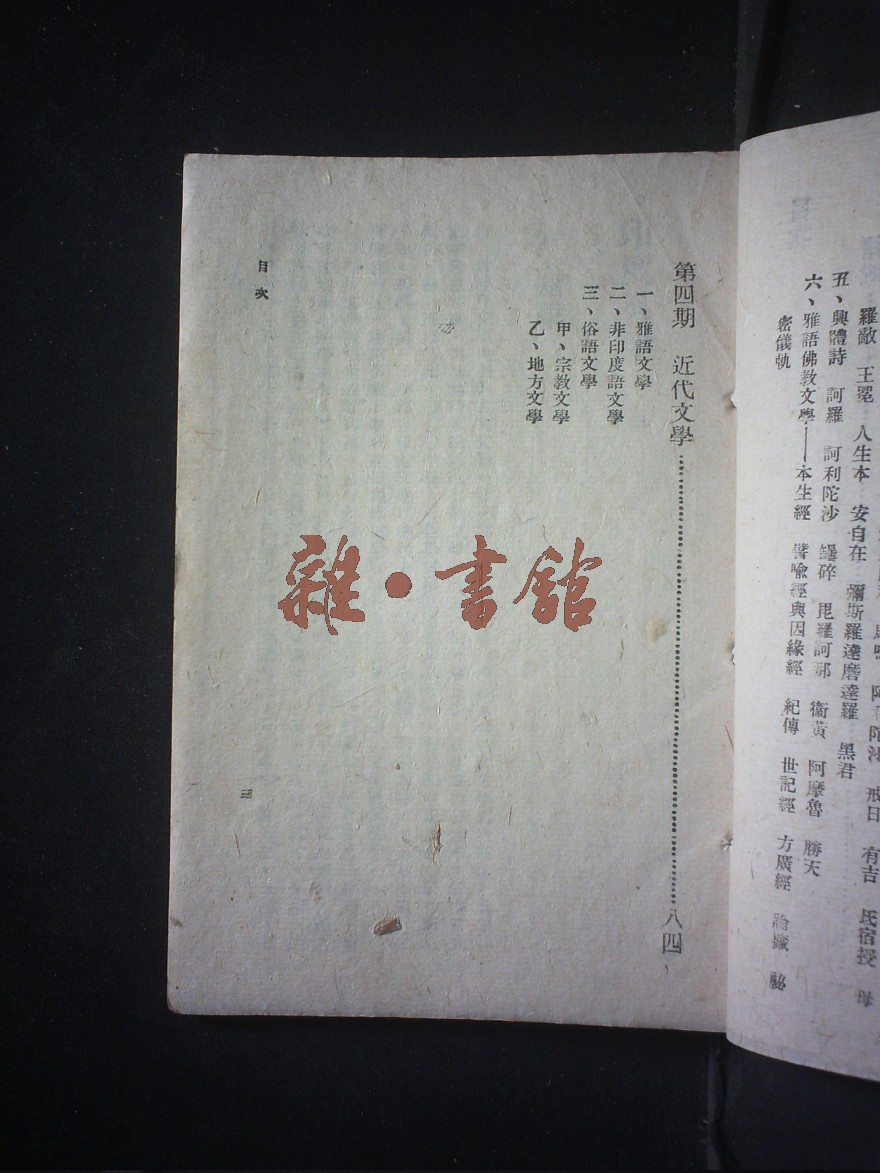 羅敵　王冕　人生本　安自在　彌斯羅達磨達羅　黑君
丑、興體詩　訶羅　訶利陀沙　毘羅訶那　衞黃　阿摩魯　勝天
六、雅語佛教文學——本生經　譬喩經與因緣經　紀傳　世記經　方廣經　論藏
密儀軌
第四期　近代文學…………八四
一、雅語文學
二、非印度語文學
三、俗語文學
甲、宗教文學
乙、地方文學
目次
三
雜·書舘